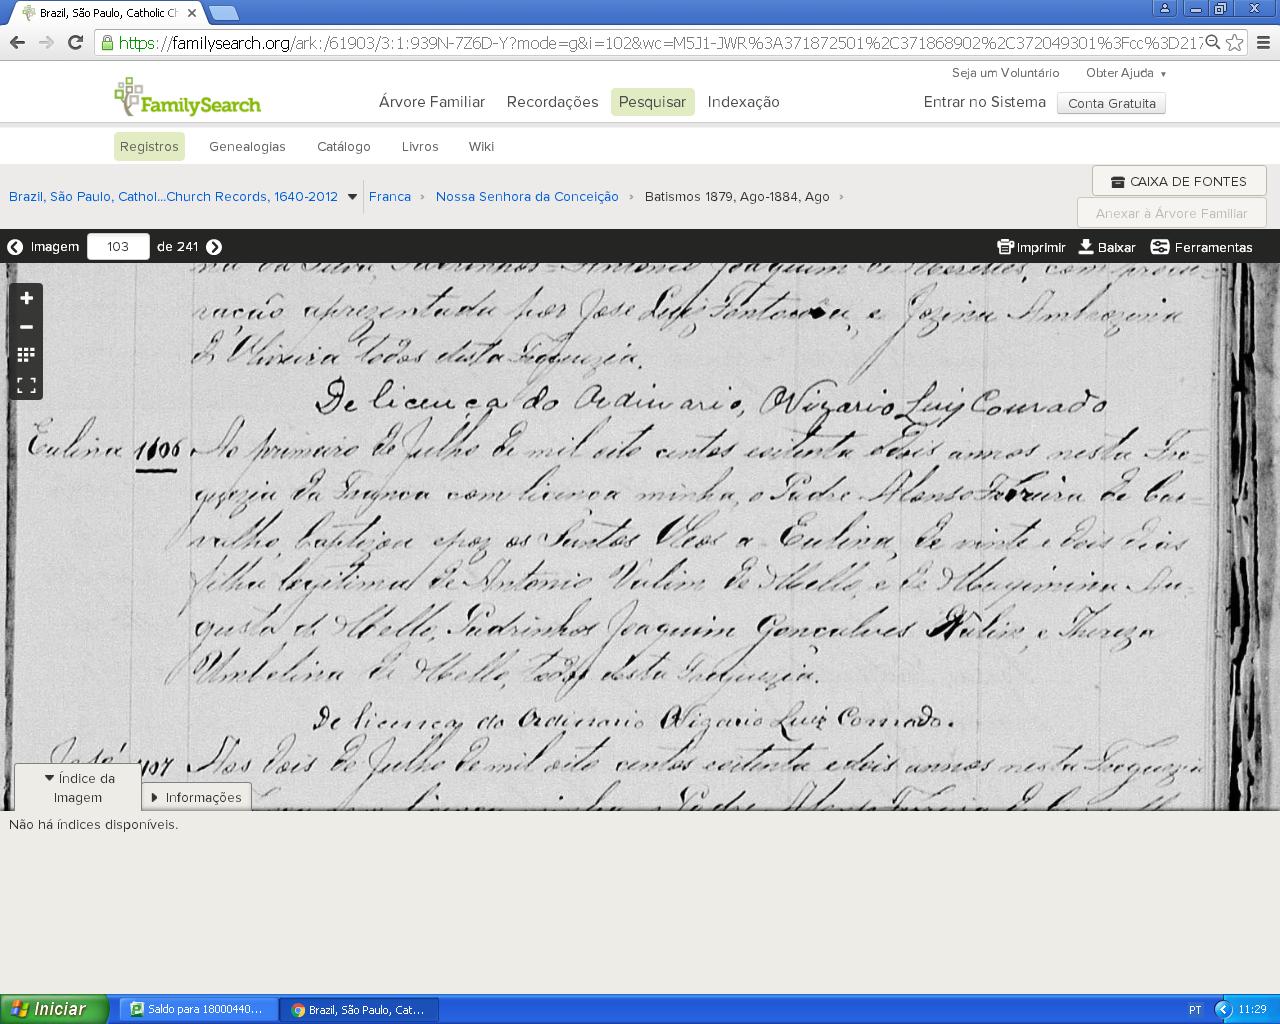 Brazil, São Paulo, Catholic Ch
https://familysearch.org/ark:/61903/3:1:939N-7Z6D-Y?mode=g&i=102&wc=M5J1-JWR%3A371872501%2C371868902%2C372049301%3Fcc%3D217
Seja um Voluntário Obter Ajuda
FamilySearch Árvore Familiar Recordações Pesquisar Indexação Entrar no Sistema Conta Gratuita
Registros Genealogias Catálogo Livros Wiki
CAIXA DE FONTES
Brazil, São Paulo, Cathol...Church Records, 1640-2012 Franca › Nossa Senhora da Conceição › Batismos 1879, Ago-1884, Ago ›
Anexar à Árvore Familiar
Imagem 103 de 241 Imprimir Baixar Ferramentas
da Silva, Padrinhos Antonio Joaquim de com procu-
ração aprezentada por Jose Luiz e Jozina Ambrozina
d'Oliveira todos desta Freguezia.
De licença do Ordinario, O Vizario Luiz Conrado
Eulina 1106 Ao primeiro de Julho de mil oito centos eoitenta edois annos nesta Fre-
guezia da Franca com licença minha, o Padre Alonso Ferreira de Car-
valho, baptizou epoz os Santos Oleos a Eulina, de vinte e dois dias
filha legitima de Antonio Valim de Mello, e de Maximina Au-
gusta de Mello, Padrinhos Joaquim Gonçalves Valim, e Thereza
Umbelina de Mello, todos desta Freguezia.
De licença do Ordinario O Vizario Luiz Conrado.
José 1107 Aos dois de Julho de mil oito centos eoitenta edois annos nesta Freguezia
licença minha o Padre Alonso Ferreira de Carvalho
Índice da Imagem
Informações
Não há índices disponíveis.
Iniciar Saldo para 18000440... Brazil, São Paulo, Cat... PT 11:29